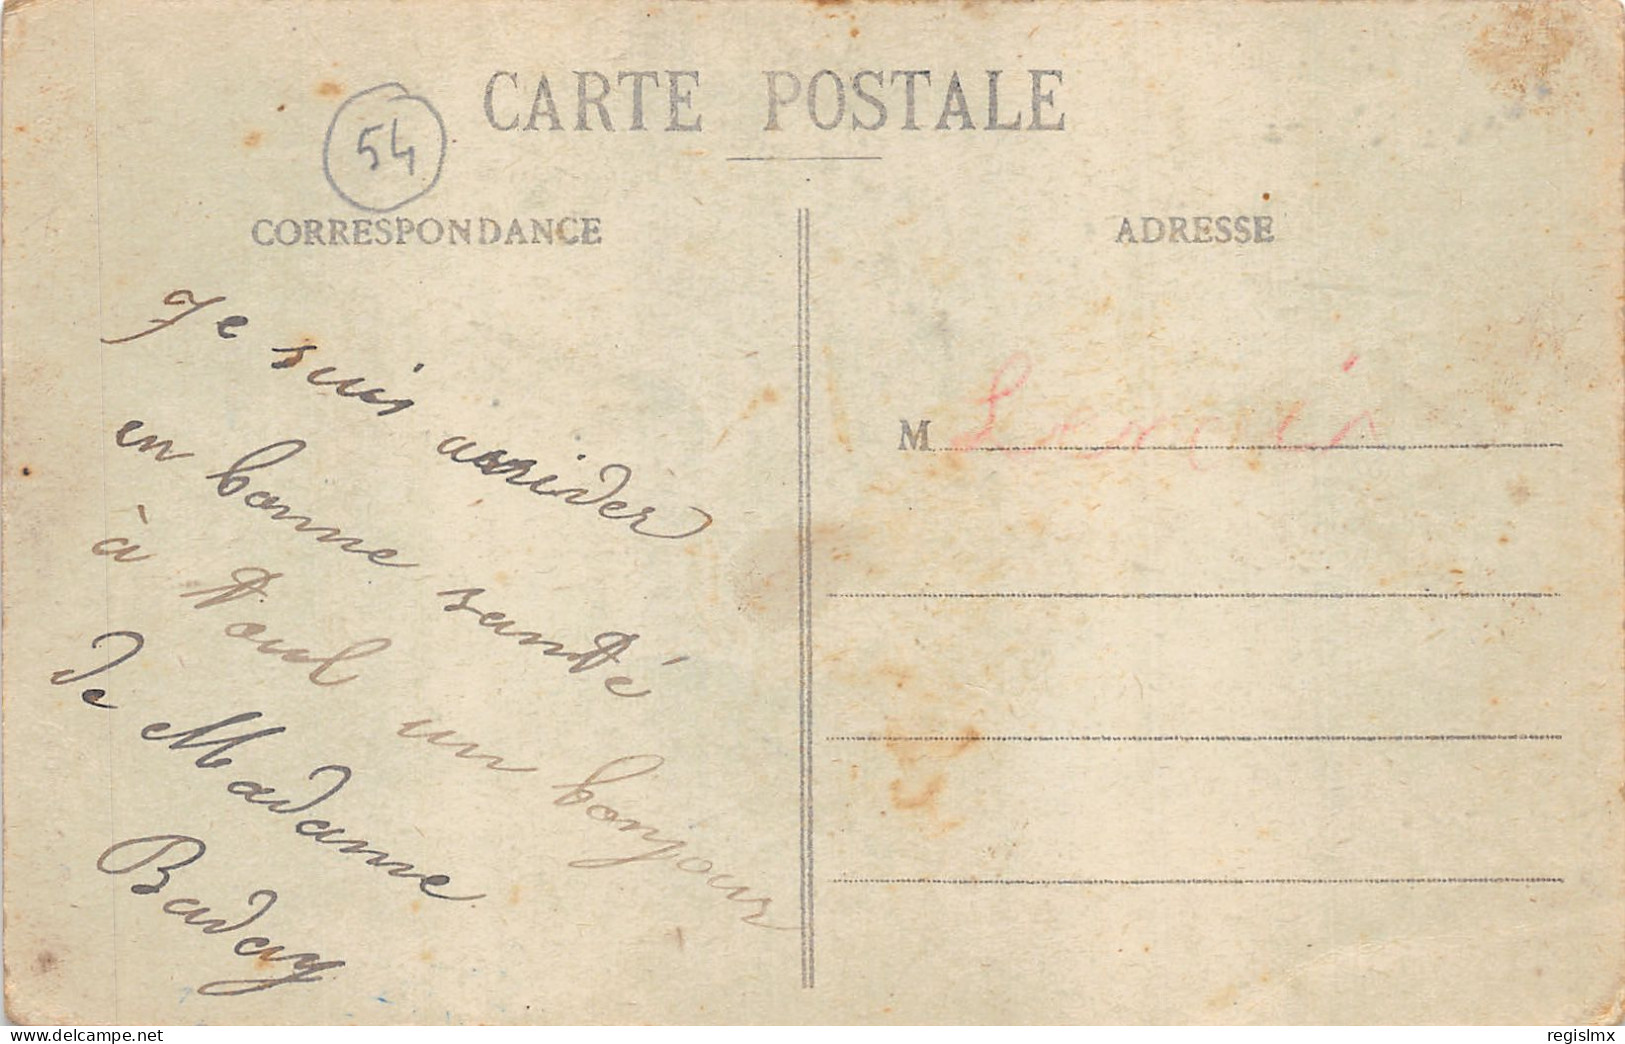 CARTE POSTALE
54
CORRESPONDANCE
ADRESSE
Je suis arrider
en bonne santé
à Toul un bonjour
de Madame
Baday
M
www.delcampe.net
regislmx